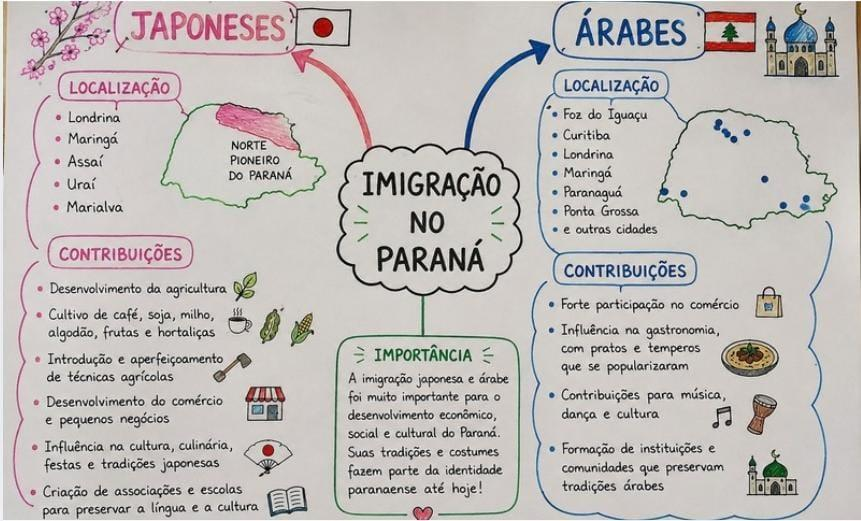 JAPONESES
LOCALIZAÇÃO
Londrina
Maringá
Assaí
Uraí
Marialva
NORTE
PIONEIRO
DO PARANÁ
CONTRIBUIÇÕES
Desenvolvimento da agricultura
Cultivo de café, soja, milho,
algodão, frutas e hortaliças
Introdução e aperfeiçoamento
de técnicas agrícolas
Desenvolvimento do comércio
e pequenos negócios
Influência na cultura, culinária,
festas e tradições japonesas
Criação de associações e escolas
para preservar a língua e a cultura
IMIGRAÇÃO
NO
PARANÁ
IMPORTÂNCIA
A imigração japonesa e árabe
foi muito importante para o
desenvolvimento econômico,
social e cultural do Paraná.
Suas tradições e costumes
fazem parte da identidade
paranaense até hoje!
ÁRABES
LOCALIZAÇÃO
Foz do Iguaçu
Curitiba
Londrina
Maringá
Paranaguá
Ponta Grossa
e outras cidades
CONTRIBUIÇÕES
Forte participação no comércio
Influência na gastronomia,
com pratos e temperos
que se popularizaram
Contribuições para música,
dança e cultura
Formação de instituições e
comunidades que preservam
tradições árabes